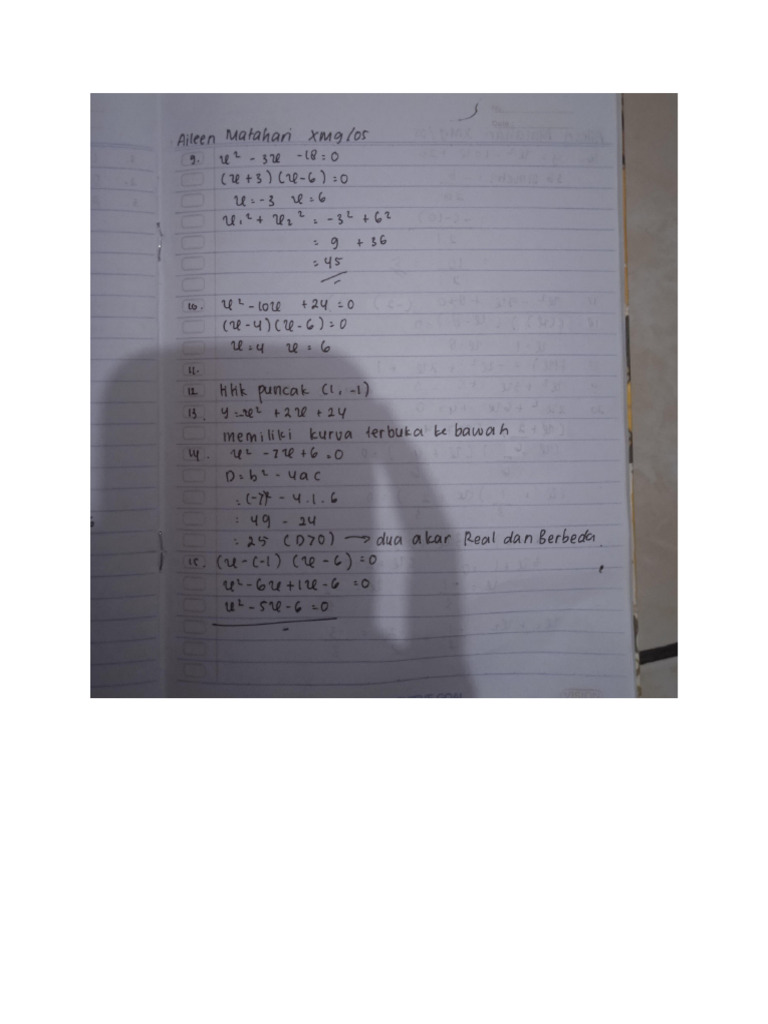 Aileen Matahari XM9/05
9. x² - 3x - 18 = 0
(x + 3) (x - 6) = 0
x = -3 x = 6
x₁² + x₂² = -3² + 6²
= 9 + 36
= 45
10. x² - 10x + 24 = 0
(x - 4) (x - 6) = 0
x = 4 x = 6
11.
12. titik puncak (1, -1)
13. y = -x² + 2x + 24
memiliki kurva terbuka ke bawah
14. x² - 7x + 6 = 0
D = b² - 4ac
= (-7)² - 4.1.6
= 49 - 24
= 25 (D>0) → dua akar Real dan Berbeda.
15. (x - (-1) (x - 6) = 0
x² - 6x + 1x - 6 = 0
x² - 5x - 6 = 0